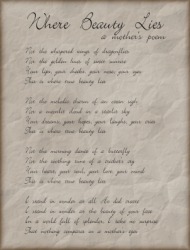 Where Beauty Lies
a mother's poem
Not the whispered wings of dragonflies
Nor the golden hues of sweet sunrise
Your lips, your cheeks, your nose, your eyes
This is where true beauty lies
Not the melodic charm of an ocean sigh
Nor a regal bird in a sky
Your dreams, your hopes, your laughs, your cries
This is where true beauty lies
Not the morning dance of a butterfly
Nor the soothing tune of a cricket's cry
Your heart, your soul, your love your mind
This is where true beauty lies
I stand in wonder as all
I stand in wonder at the beauty of your face
In a world full of splendor, I take no surprise
That nothing compares in a mother's eyes